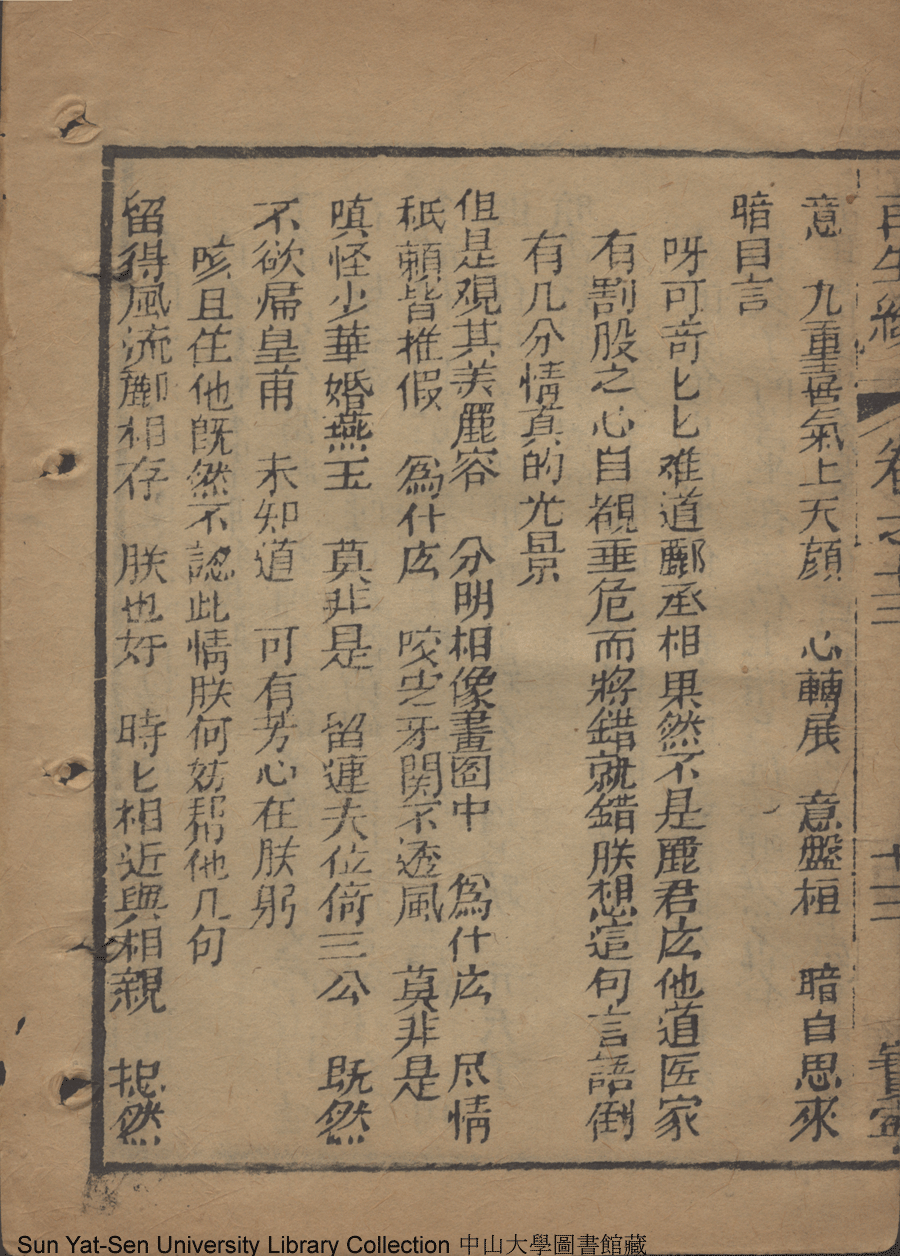 再生緣 卷之十三 十三 寶寧
意 九重喜氣上天顔 心轉展 意盤桓 暗自思來
暗目言
呀可竒匕匕难道酈丞相果然不是麗君庅他道医家
有割股之心自覩垂危而將錯就錯朕想這句言語倒
有几分情真的光景
但是观其美麗容 分明相像畫圖中 為什庅 尽情
秖頼皆推假 為什庅 咬定牙関不透風 莫非是
嗔怪少華婚燕玉 莫非是 留連夫位倚三公 既然
不欲帰皇甫 未知道 可有芳心在朕躬
咳且住他既然不認此情朕何妨帮他几句
留得風流酈相存 朕也好 時匕相近與相親 抱然
Sun Yat-Sen University Library Collection 中山大學圖書館藏